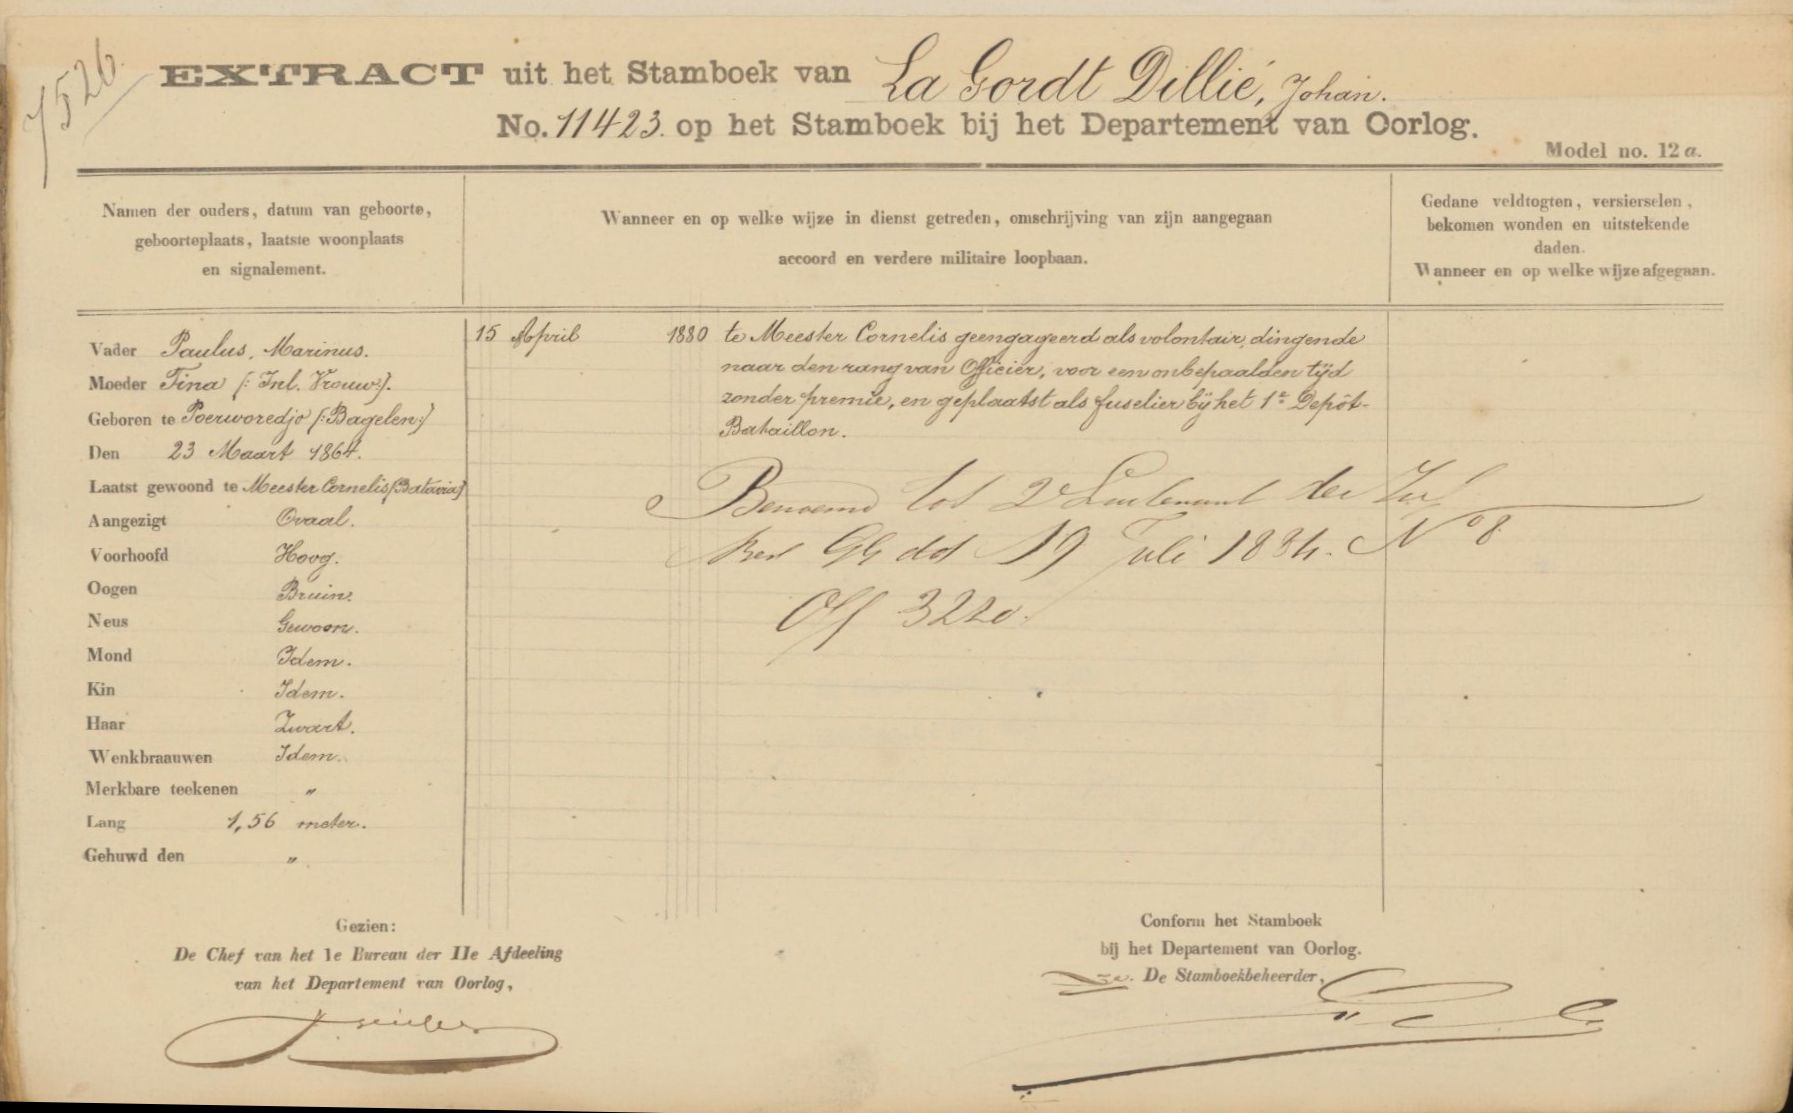 7526.
EXTRACT uit het Stamboek van La Gordt Dillié, Johan.
No. 11423. op het Stamboek bij het Departement van Oorlog.
Model no. 12 a.
Namen der ouders, datum van geboorte,
geboorteplaats, laatste woonplaats
en signalement.
Wanneer en op welke wijze in dienst getreden, omschrijving van zijn aangegaan
accoord en verdere militaire loopbaan.
Gedane veldtogten, versierselen,
bekomen wonden en uitstekende
daden.
Wanneer en op welke wijze afgegaan.
Vader Paulus, Marinus.
Moeder Tina (: Inl. Vrouw:).
Geboren te Poerworedjo (:Bagelen:)
Den 23 Maart 1864.
Laatst gewoond te Meester Cornelis (Batavia)
Aangezigt Ovaal.
Voorhoofd Hoog.
Oogen Bruin.
Neus Gewoon.
Mond Idem.
Kin Idem.
Haar Zwart.
Wenkbraauwen Idem.
Merkbare teekenen "
Lang 1,56 meter.
Gehuwd den "
15 April 1880 te Meester Cornelis geengageerd als volontair, dingende
naar den rang van Officier, voor een onbepaalden tijd
zonder premie, en geplaatst als fuselier bij het 1e Depôt-
Bataillon.
Benoemd tot 2e Luitenant der Inf
Besl GG dd 19 Juli 1884. No 8.
Off 3220.
Gezien:
De Chef van het 1e Bureau der IIe Afdeeling
van het Departement van Oorlog,
Conform het Stamboek
bij het Departement van Oorlog.
De Stamboekbeheerder,